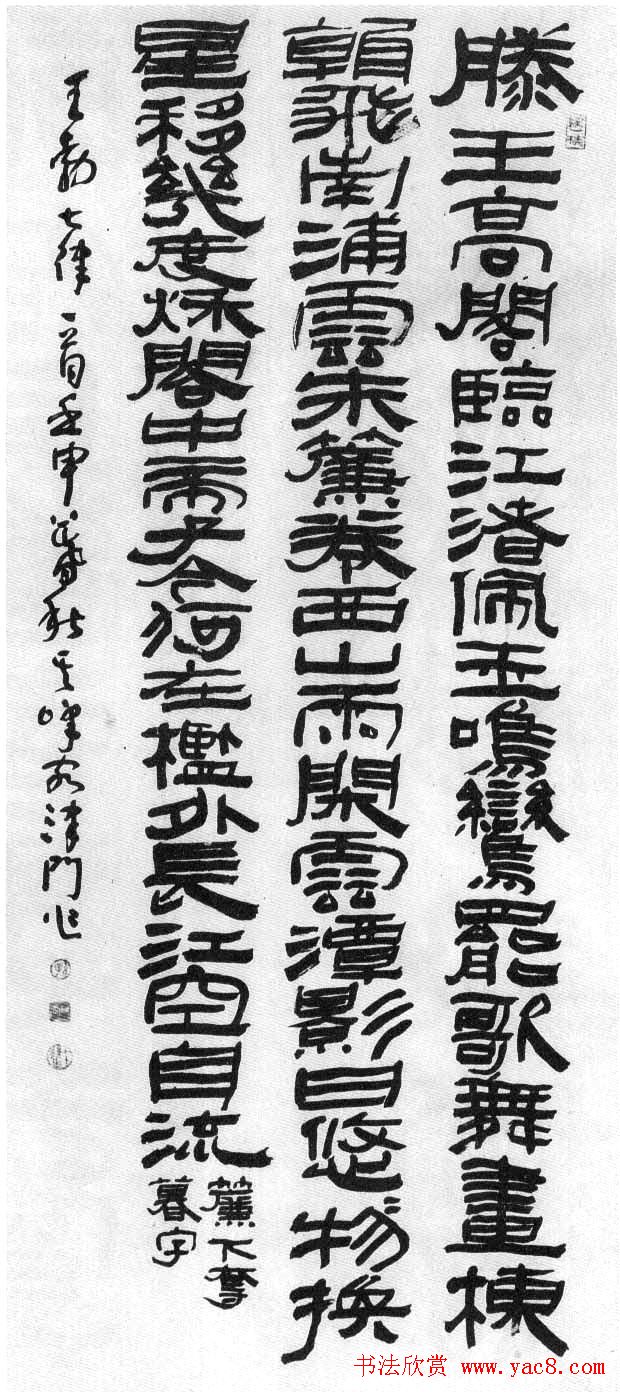 滕王高閣臨江渚佩玉鳴鸞罷歌舞畫棟
朝飛南浦雲朱簾卷西山雨閑雲潭影日悠物換
星移幾度秌閣中帝子今何在檻外長江空自流
簾下奪
暮字
王勃七律一首壬申暮秋其峰客津門作
书法欣赏 www.yac8.com